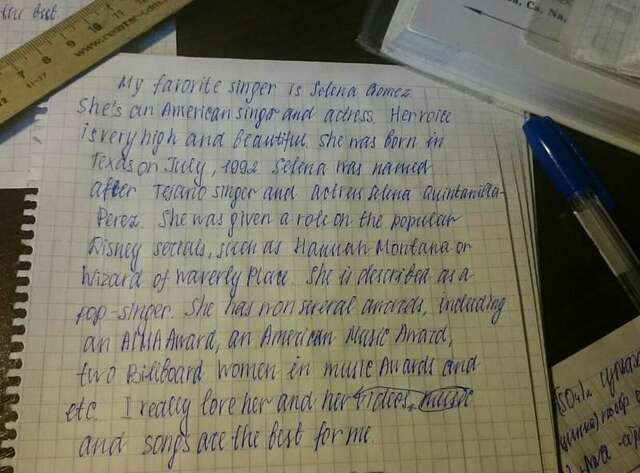 the best.
7 8 9 10
11-17
Ca, Na,
My favorite singer is Selena Gomez.
She's an American singr and actress. Her voice
is very high and beautiful. She was born in
Texas on July, 1992. Selena was named
after Tejano singer and actress Selena Quintanilla-
Perez. She was given a role on the popular
Disney serials, such as Hannah Montana or
Wizard of Waverly Place. She is described as a
pop-singer. She has won several awards, including
an ALMA Award, an American Music Award,
two Billboard Women in music Awards and
etc. I really love her and her videos, music
and songs are the best for me